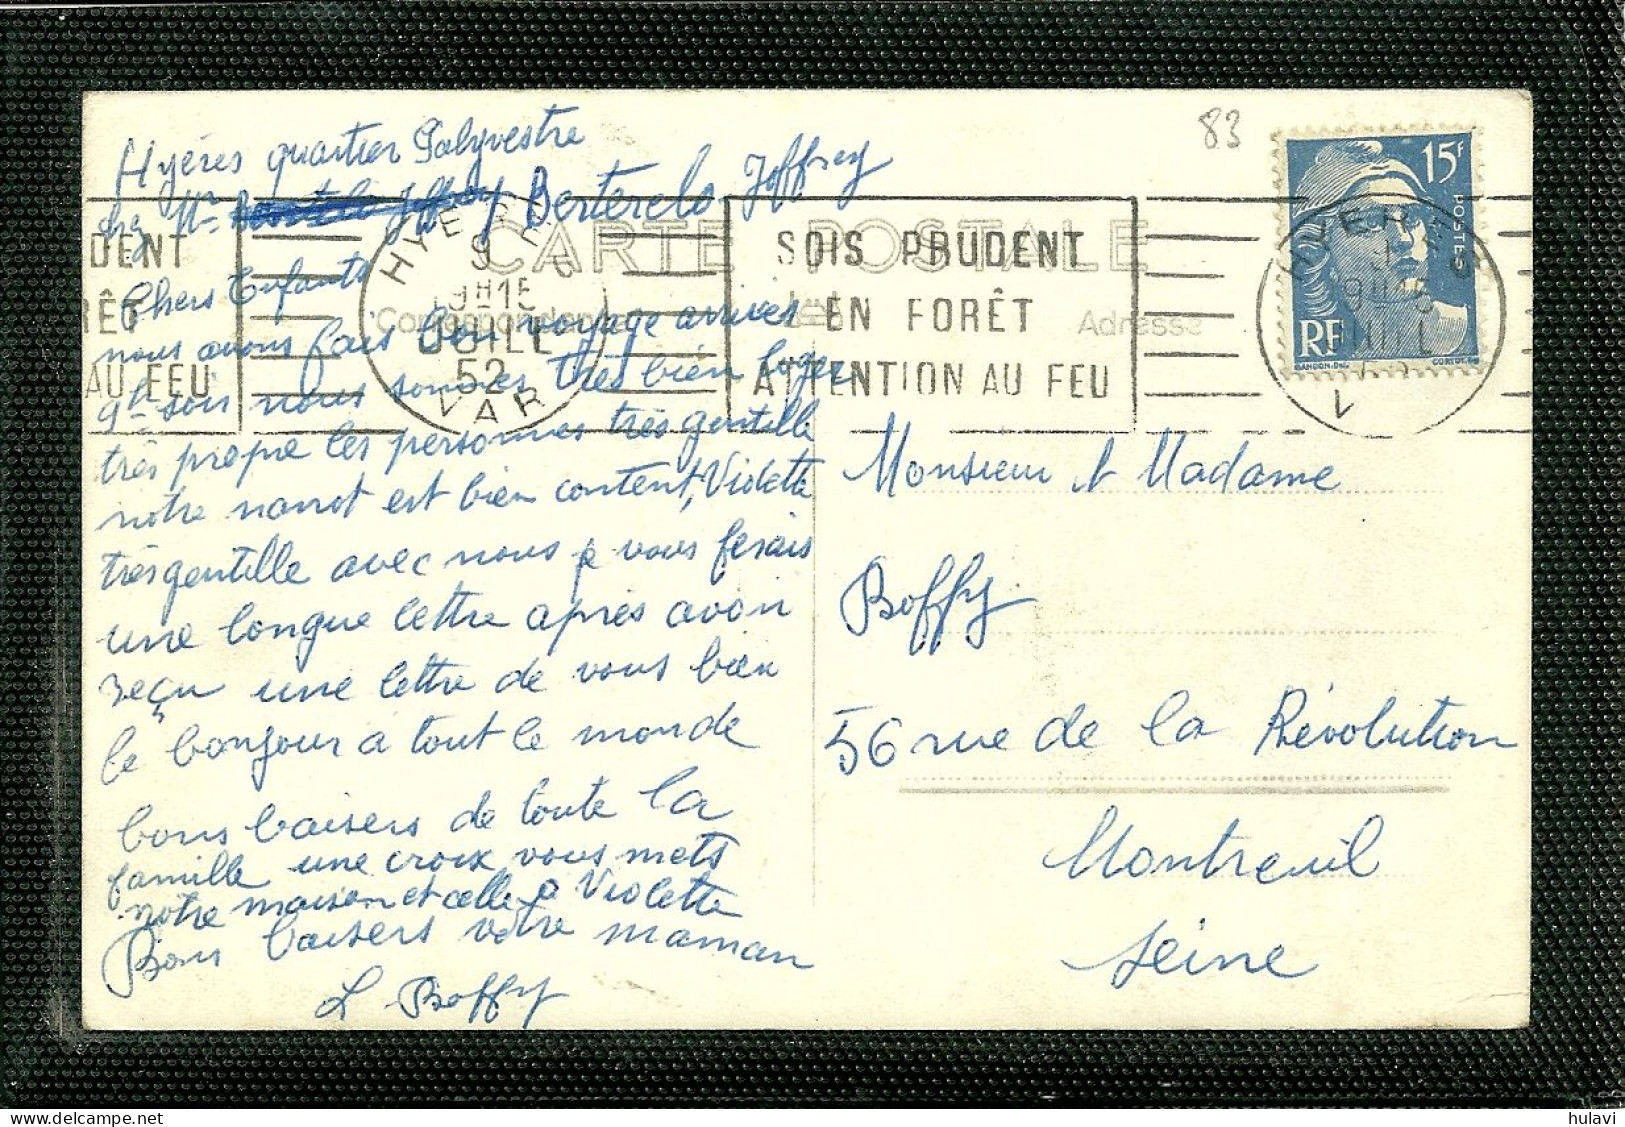 83
Hyéres quartier Salyvestre
chez Mr Berterelo Joffrey
CARTE POSTALE
Correspondance
Adresse
HYERES
9
19H15
JUILL
52
VAR
SOIS PRUDENT
EN FORÊT
ATTENTION AU FEU
DENT
RÊT
AU FEU
15F
POSTES
RF
GANDON DEL
CORTOT SC
Chers Enfants
nous avons fait bon voyage arrives
9h soir nous sommes très bien loger
très propre les personnes très gentille
notre nanot est bien content, Violette
très gentille avec nous je vous ferais
une longue lettre après avoir
reçu une lettre de vous bien
le bonjour a tout le monde
bons baisers de toute la
famille une croix vous mets
notre maison et celle a Violette
Bons baisers votre maman
L Boffy
Monsieur et Madame
Boffy
56 rue de la Révolution
Montreuil
Seine
hulavi